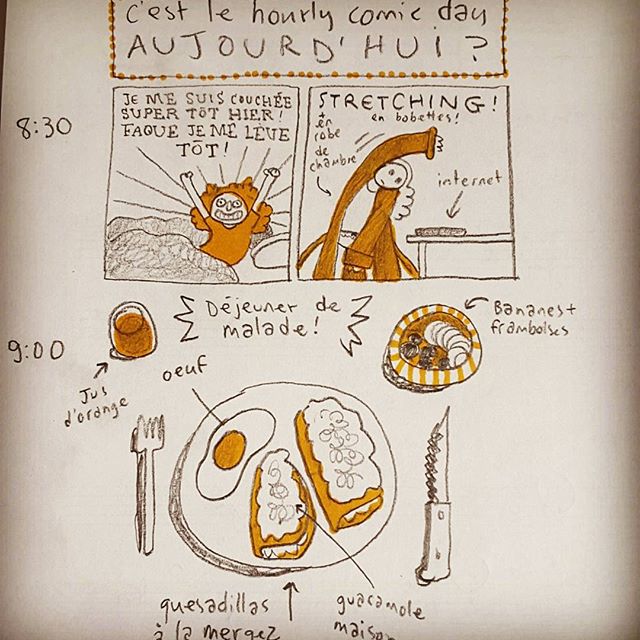 c'est le hourly comic day
AUJOURD'HUI?
8:30
JE ME SUIS COUCHÉE
SUPER TÔT HIER!
FAQUE JE ME LÈVE
TÔT!
STRETCHING!
en bobettes!
en
robe
de
chambre
internet
9:00
Déjeuner de
malade!
Bananes +
framboises
Jus
d'orange
oeuf
quesadillas
à la merguez
guacamole
maison